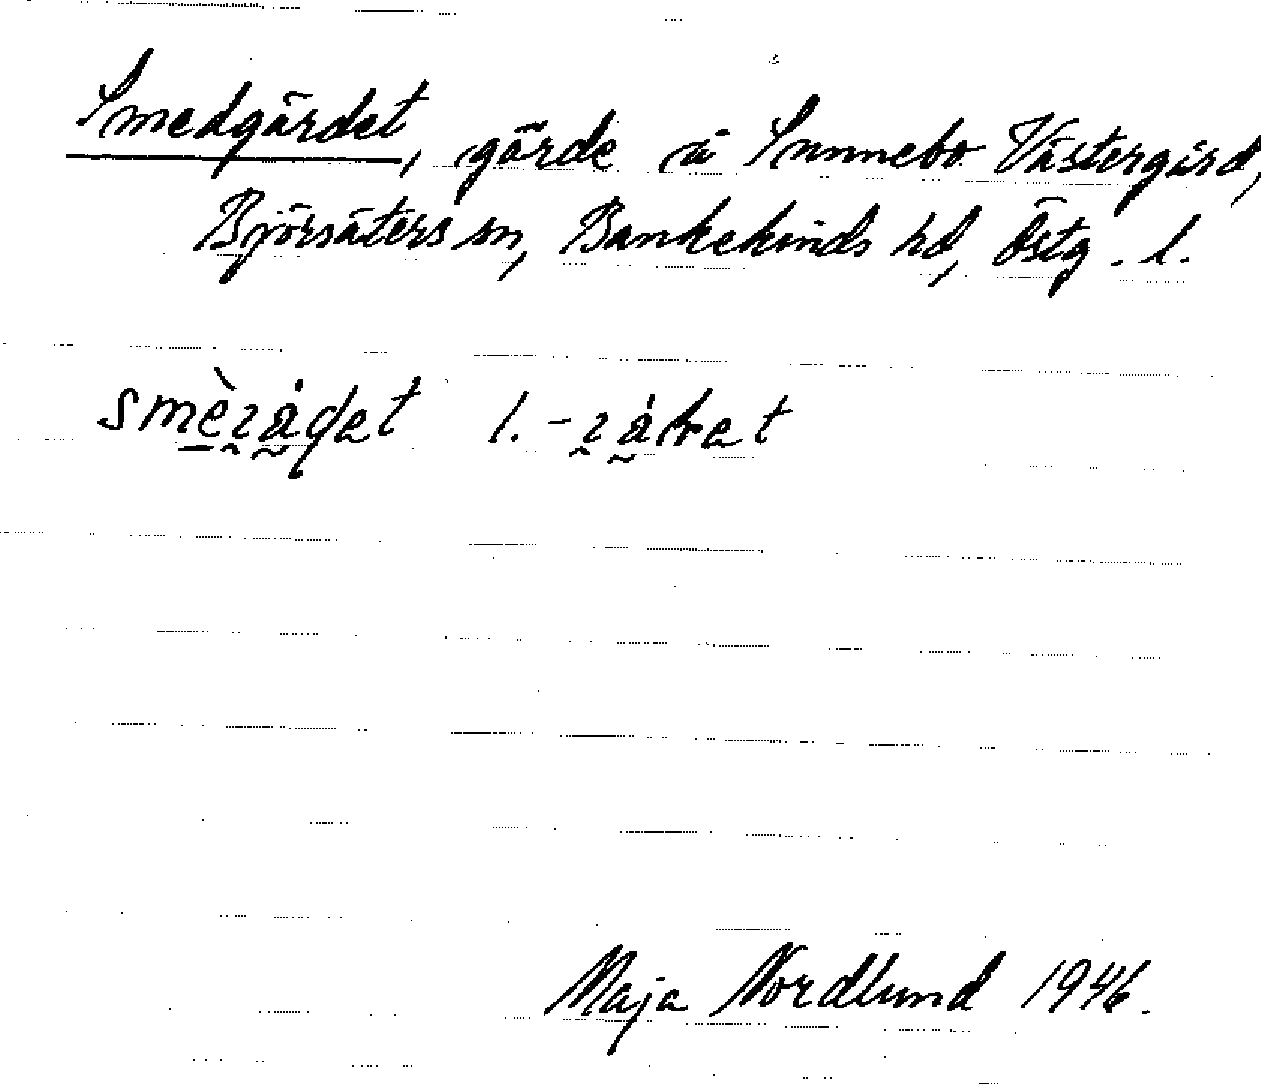 Smedgärdet, gärde å Sunnebo Västergård,
Björsäters sn, Bankekinds hd, Östg. l.
l.
Maja Nordlund 1946.